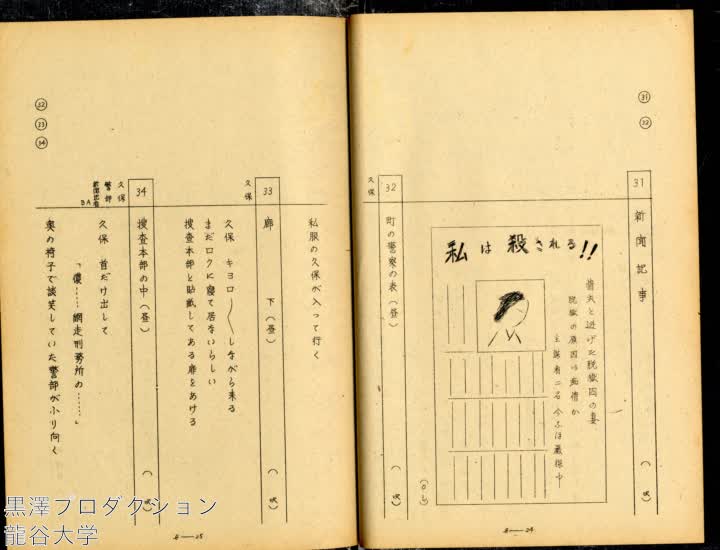 ㉛
㉜
31
新聞記事
(　吹)
私は殺される!!
情夫と逃げた脱獄囚の妻
脱獄の原因は痴情か
主謀者二名今なほ厳探中
(O・L)
久保
32
町の警察の表(昼)
(　吹)
8—24
㉜
㉝
㉞
私服の久保が入って行く
久保
33
廊　下(昼)
(　吹)
久保　キョロ〱しながら来る
まだロクに寝て居ないらしい
捜査本部と貼紙してある扉をあける
久保
警部
新聞記者
BA
34
捜査本部の中(昼)
(　吹)
久保　首だけ出して
「僕……網走刑務所の……」
奥の椅子で談笑していた警部がふり向く
8—25
黒澤プロダクション
龍谷大学